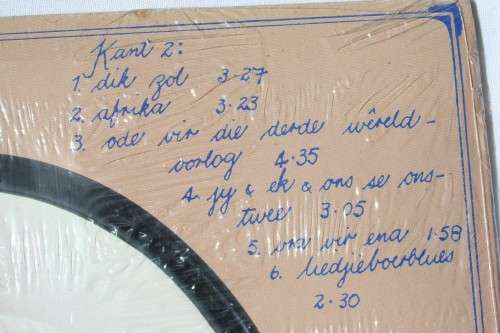 Kant 2:
1. dik zol 3.27
2. afrika 3.23
3. ode vir die derde wêreld-
oorlog 4.35
4. jy & ek & ons se ons-
twee 3.05
5. vra vir ena 1.58
6. liedjieboerblues
2.30